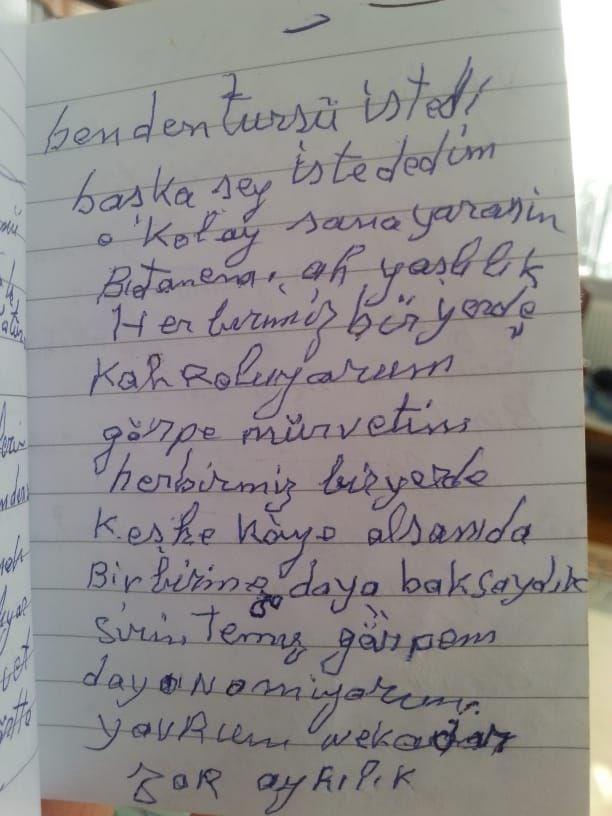 benden turşü istedi
baska sey istededim
o kolay sana yarasin
Bitanem. ah yaslılık
Herbirimiz bir yerde
Kahroluyorum
görpe mürvetim
herbirmiz biryerde
Keske köye alsamda
Birbirimize daya baksaydık
Sirin, Temiz görpem
dayanamiyorum.
yavRum nekadar
ZoR ayRılık